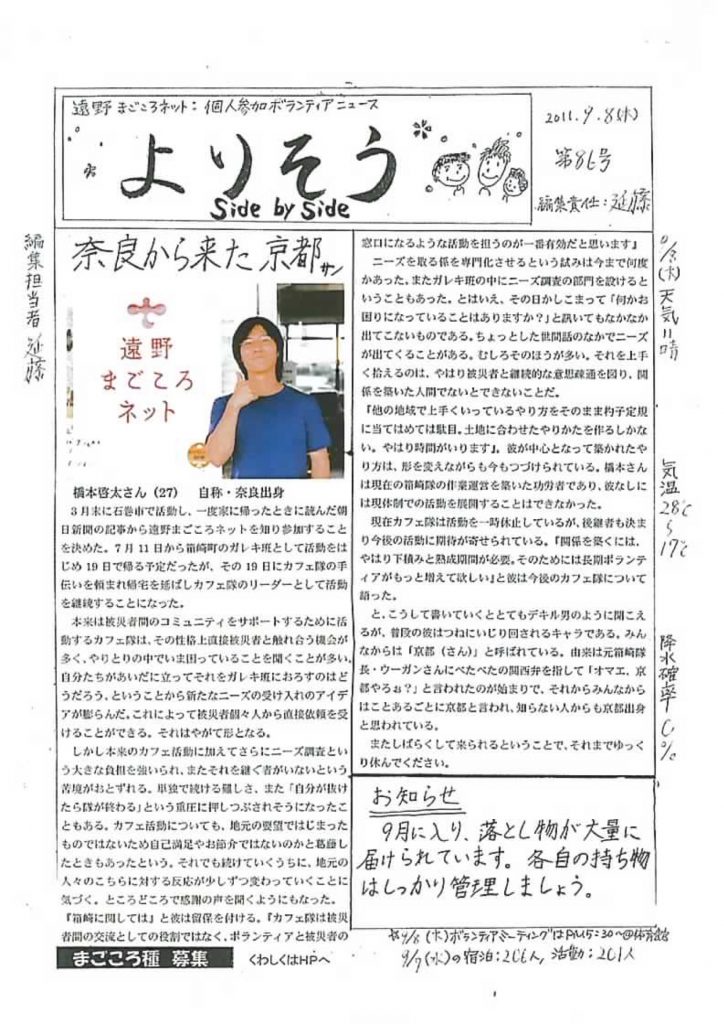 遠野まごころネット:個人参加ボランティアニュース
よりそう
Side by Side
2011.9.8(木)
第86号
編集責任:延藤
編集担当者 延藤
奈良から来た京都サン
遠野
まごころ
ネット
橋本啓太さん(27) 自称・奈良出身
3月末に石巻市で活動し、一度家に帰ったときに読んだ朝
日新聞の記事から遠野まごころネットを知り参加すること
を決めた。7月11日から箱崎町のガレキ班として活動を
はじめ19日で帰る予定だったが、その19日にカフェ隊の手
伝いを頼まれ帰宅を延ばしカフェ隊のリーダーとして活動
を継続することになった。
本来は被災者間のコミュニティをサポートするために活
動するカフェ隊は、その性格上直接被災者と触れ合う機会が
多く、やりとりの中でいま困っていることを聞くことが多い。
自分たちがあいだに立ってそれをガレキ班におろすのはど
うだろう、ということから新たなニーズの受け入れのアイデ
アが膨らんだ。これによって被災者個々人から直接依頼を受
けることができる。それはやがて形となる。
しかし本来のカフェ活動に加えてさらにニーズ調査とい
う大きな負担を強いられ、またそれを継ぐ者がいないという
苦境がおとずれる。単独で続ける難しさ、また「自分が抜け
たら隊が終わる」という重圧に押しつぶされそうになったこ
ともある。カフェ活動についても、地元の要望ではじまった
ものではないため自己満足やお節介ではないのかと葛藤し
たときもあったという。それでも続けていくうちに、地元の
人々のこちらに対する反応が少しずつ変わっていくことに
気づく。ところどころで感謝の声を聞くようにもなった。
『箱崎に関しては』と彼は留保を付ける。『カフェ隊は被災
者間の交流としての役割ではなく、ボランティアと被災者の
窓口になるような活動を担うのが一番有効だと思います』
ニーズを取る係を専門化させるという試みは今まで何度
かあった。またガレキ班の中にニーズ調査の部門を設けると
いうこともあった。とはいえ、その日かしこまって「何かお
困りになっていることはありますか?」と訊いてもなかなか
出てこないものである。ちょっとした世間話のなかでニーズ
が出てくることがある。むしろそのほうが多い。それを上手
く拾えるのは、やはり被災者と継続的な意思疎通を図り、関
係を築いた人間でないとできないことだ。
『他の地域で上手くいっているやり方をそのまま杓子定規
に当てはめては駄目。土地に合わせたやりかたを作るしかな
い。やはり時間がいります』。彼が中心となって築かれたや
り方は、形を変えながらも今もつづけられている。橋本さん
は現在の箱崎隊の作業運営を築いた功労者であり、彼なしに
は現体制での活動を展開することはできなかった。
現在カフェ隊は活動を一時休止しているが、後継者も決ま
り今後の活動に期待が寄せられている。『関係を築くには、
やはり下積みと熟成期間が必要。そのためには長期ボランテ
ィアがもっと増えて欲しい』と彼は今後のカフェ隊について
語った。
と、こうして書いていくととてもデキル男のように聞こえ
るが、普段の彼はつねにいじり回されるキャラである。みん
なからは「京都(さん)」と呼ばれている。由来は元箱崎隊
長・ウーガンさんにべたべたの関西弁を指して「オマエ、京
都やろぉ?」と言われたのが始まりで、それからみんなから
はことあるごとに京都と言われ、知らない人からも京都出身
と思われている。
またしばらくして来られるということで、それまでゆっく
り休んでください。
9/8(木)天気:晴
気温 28℃~17℃
降水確率 0%
お知らせ
9月に入り、落とし物が大量に
届けられています。各自の持ち物
はしっかり管理しましょう。
まごころ種 募集 くわしくはHPへ
☆9/8(木)ボランティアミーティングはPM5:30~@体育館
9/7(水)の宿泊:206人, 活動:201人